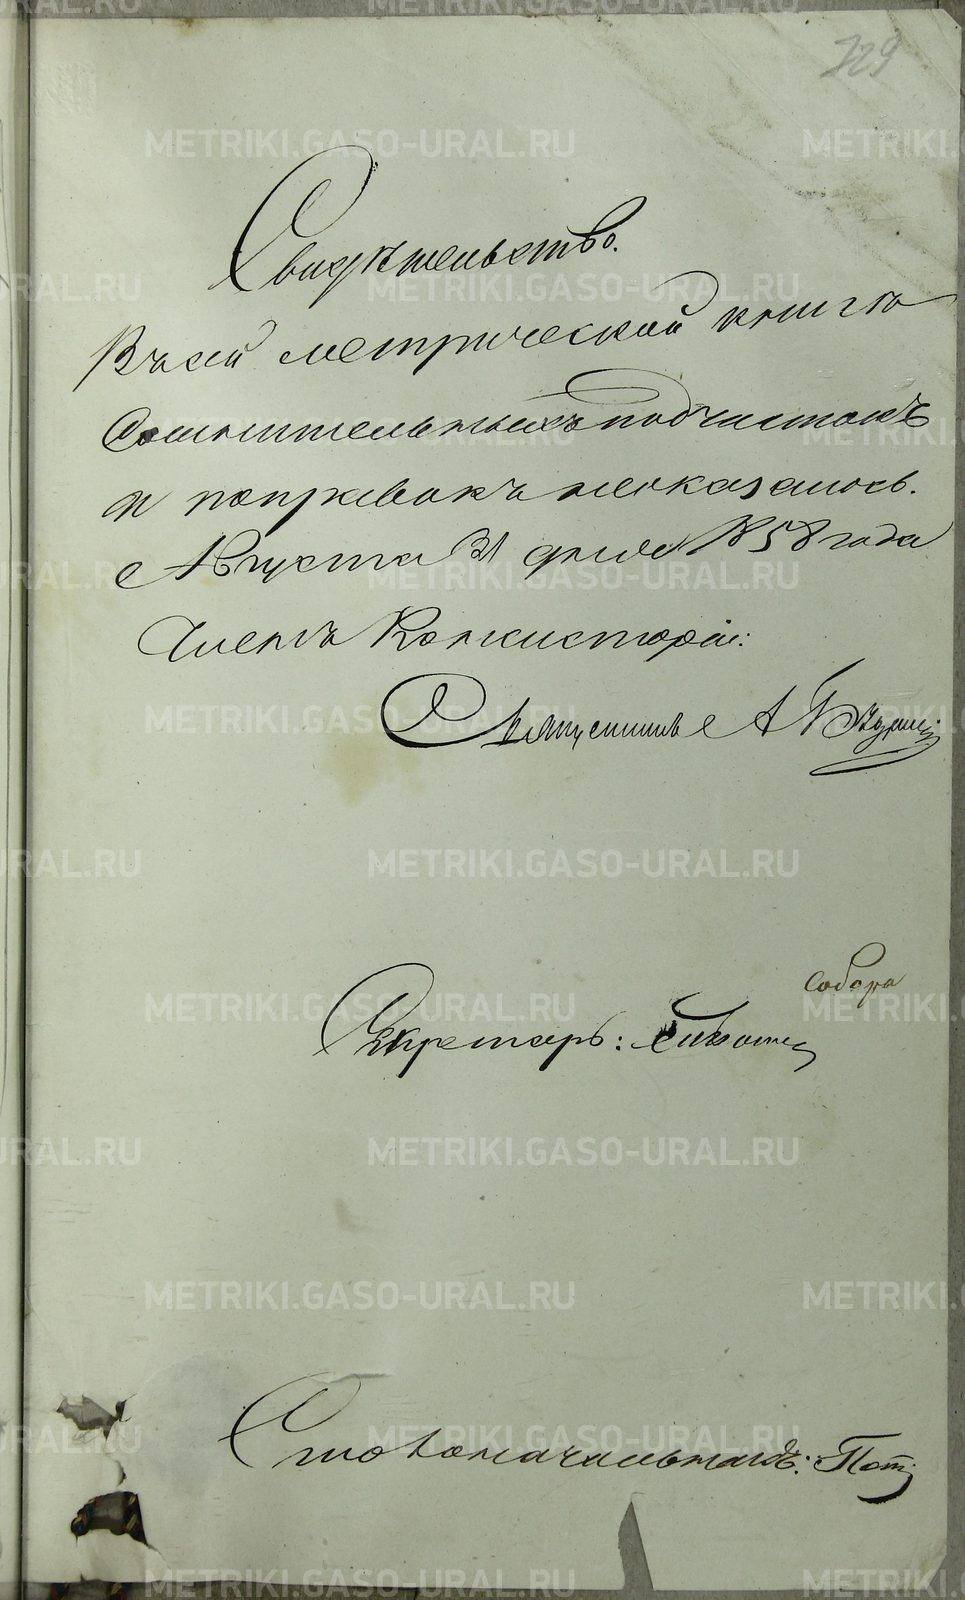 729
Свидѣтельство.
Въ сей метрической книгѣ
сомнительныхъ подчистокъ
и поправокъ неоказалось.
Августа 31 дня 1858 года
Членъ Консисторіи:
Священникъ А
Собора
Секретарь:
Столоначальникъ:
METRIKI.GASO-URAL.RU